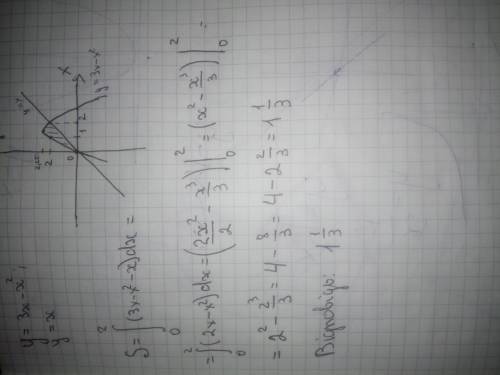 y = 3x - x²;
y = x
S = ∫₀² (3x - x² - x)dx =
= ∫₀² (2x - x²)dx = (2x²/2 - x³/3)|₀² = (x² - x³/3)|₀² =
= 2² - 2³/3 = 4 - 8/3 = 4 - 2 2/3 = 1 1/3
Відповідь: 1 1/3
y = x
X
y = 3x - x²
2
0
1
2